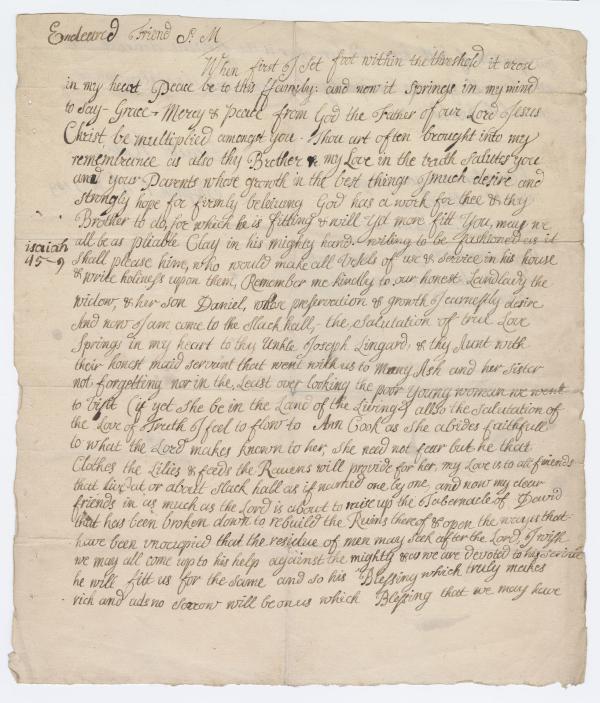 Endeared Friend S. M
When first I set foot within the threshold it arou
in my heart Peace be to this Family: and now it Springs in my mind
to Say - Grace - Mercy & Peace from God the Father of our Lord Jesus
Christ be multiplied amongst you - Thou art often brought into my
remembrance as also thy Brother & my Love in the truth Salutes you
and your Parents whose growth in the best things I much desire and
Strongly hope for firmly beleiving God has a work for thee & thy
Brother to do, for which he is fitting & will yet more fitt You, may we
all be as pliable Clay in his mighty hand willing to be fashioned as it
isaiah
45-9
Shall please him, who would make all Vesels of use & Service in his house
& write holiness upon them, Remember me kindly to our honest Landlady the
widow, & her son Daniel, whose preservation & growth I earnestly desire
And now I am come to the Slack hall, - the Salutation of true Love
Springs in my heart to thy Unkle Joseph Lingard, & thy Aunt with
their honest maid servant that went with us to Ash and her Sister
not forgetting nor in the Least over looking the poor Young woman we went
to visit (if yet She be in the Land of the Living) allso the Salutation of
the Love of Truth I feel to flow to Ann Cook as She abides faithfull
to what the Lord makes known to her, She need not fear but he that
Clothes the Lilies & feeds the Ravens will provide for her, my Love is to all friends
that live at or about Slack hall as if named one by one, and now my dear
friends in as much as the Lord is about to raise up the Tabernacle of David
that has been broken down to rebuild the Ruins thereof & open the ways that
have been unocupied that the residue of men may Seek after the Lord, I wish
we may all come up to his help against the mighty & as we are devoted to his service
he will fitt us for the Same and so his Blessing which truly makes
rich and ads no sorrow will be on us which Blessing that we may have